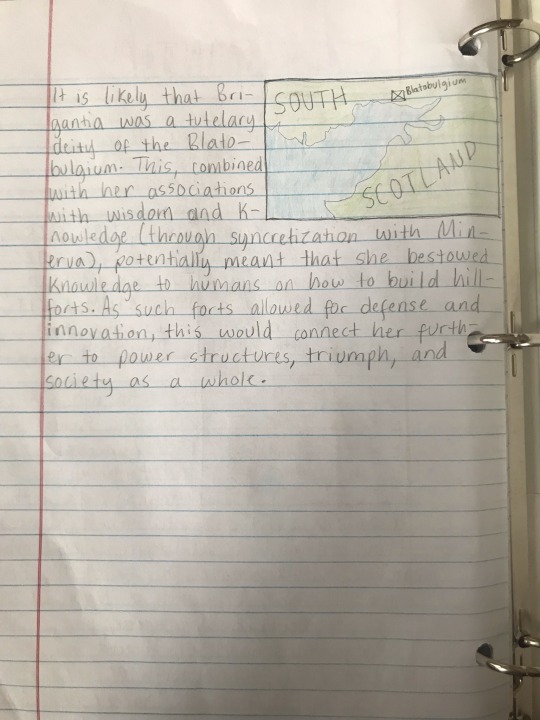 SOUTH
Blatobulgium
SCOTLAND
It is likely that Bri-
gantia was a tutelary
deity of the Blato-
bulgium. This, combined
with her associations
with wisdom and K-
nowledge (through syncretization with Min-
erva), potentially meant that she bestowed
knowledge to humans on how to build hill-
forts. As such forts allowed for defense and
innovation, this would connect her furth-
er to power structures, triumph, and
society as a whole.